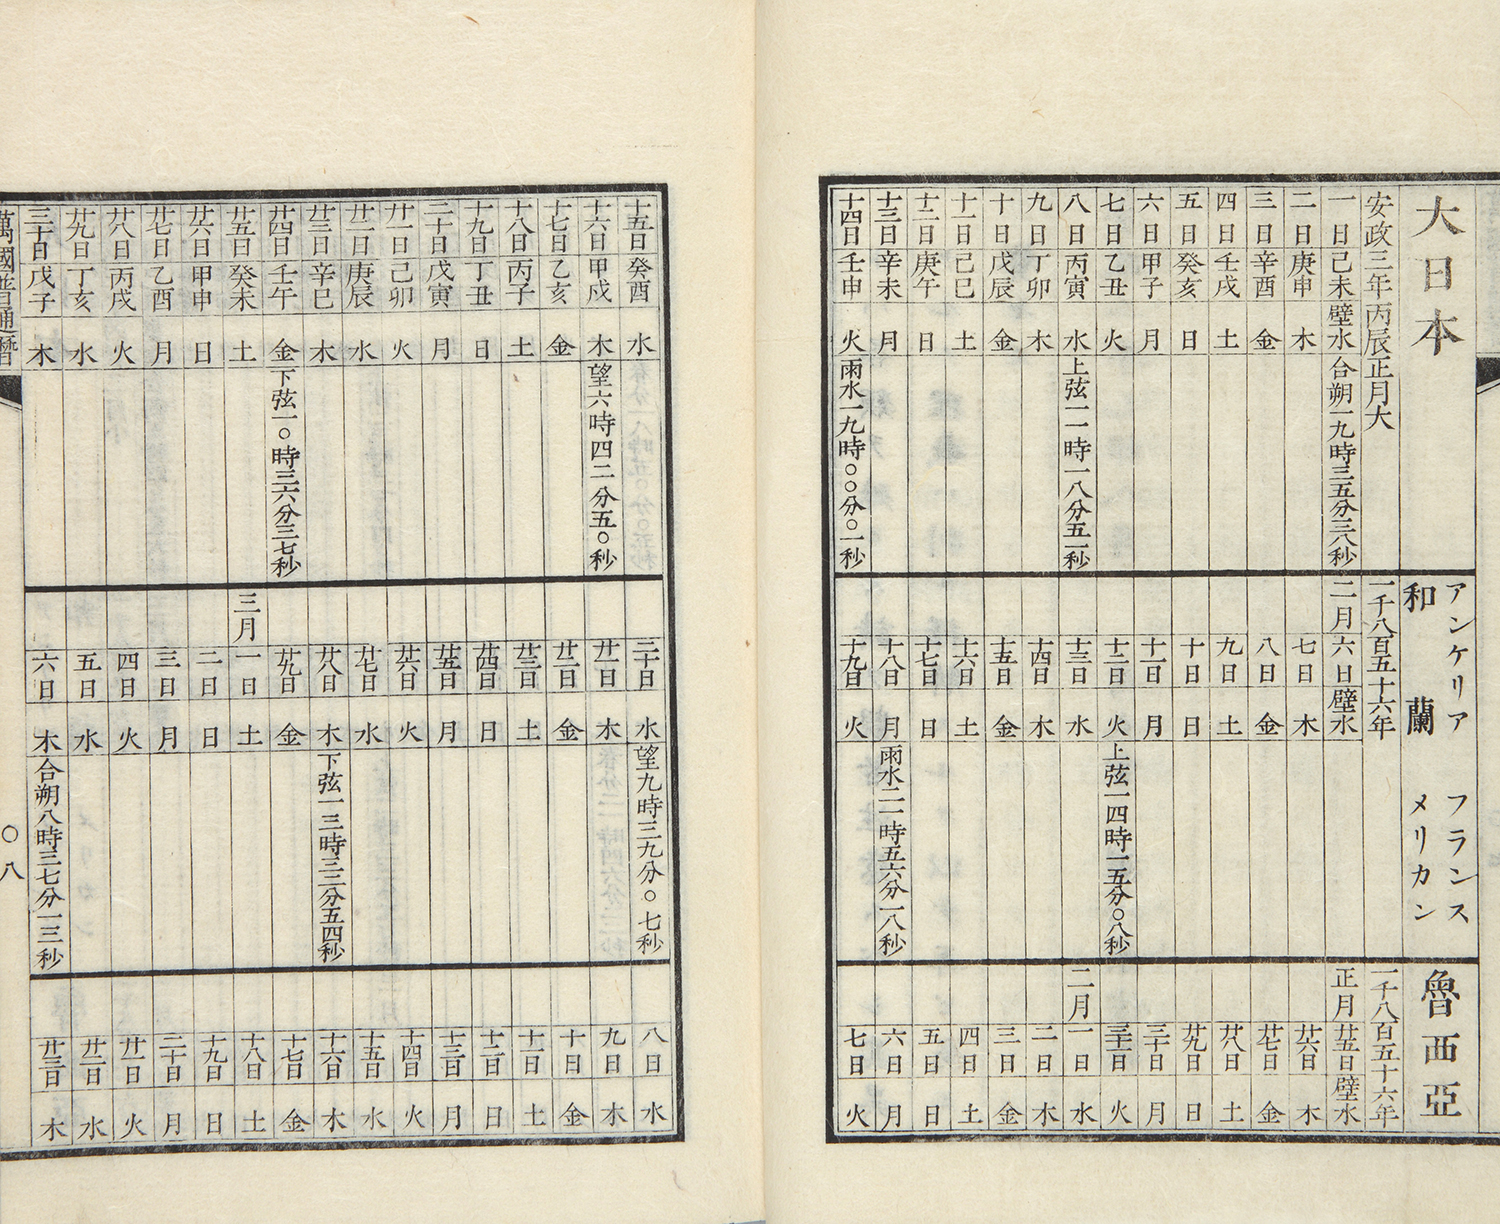 大日本
安政三年丙辰正月大
一日己未璧水合朔一九時三五分三八秒
二日庚申木
三日辛酉金
四日壬戌土
五日癸亥日
六日甲子月
七日乙丑火
八日丙寅水上弦二一時一八分五一秒
九日丁卯木
十日戊辰金
十一日己巳土
十二日庚午日
十三日辛未月
十四日壬申火雨水一九時〇〇分〇一秒
アンケリア フランス
和蘭 メリカン
一千八百五十六年
二月六日璧水
七日木
八日金
九日土
十日日
十一日月
十二日火上弦一四時一五分〇八秒
十三日水
十四日木
十五日金
十六日土
十七日日
十八日月雨水二一時五六分一八秒
十九日火
魯西亞
一千八百五十六年
正月廿五日璧水
廿六日木
廿七日金
廿八日土
廿九日日
三十日月
三十一日火
二月一日水
二日木
三日金
四日土
五日日
六日月
七日火
十五日癸酉水
十六日甲戌木望六時四二分五〇秒
十七日乙亥金
十八日丙子土
十九日丁丑日
二十日戊寅月
廿一日己卯火
廿二日庚辰水
廿三日辛巳木
廿四日壬午金下弦一〇時三六分三七秒
廿五日癸未土
廿六日甲申日
廿七日乙酉月
廿八日丙戌火
廿九日丁亥水
三十日戊子木
二十日水望九時三九分〇七秒
廿一日木
廿二日金
廿三日土
廿四日日
廿五日月
廿六日火
廿七日水
廿八日木下弦一三時三三分五四秒
廿九日金
三月一日土
二日日
三日月
四日火
五日水
六日木合朔八時三七分一三秒
八日水
九日木
十日金
十一日土
十二日日
十三日月
十四日火
十五日水
十六日木
十七日金
十八日土
十九日日
二十日月
廿一日火
廿二日水
廿三日木
萬國普通暦
〇八